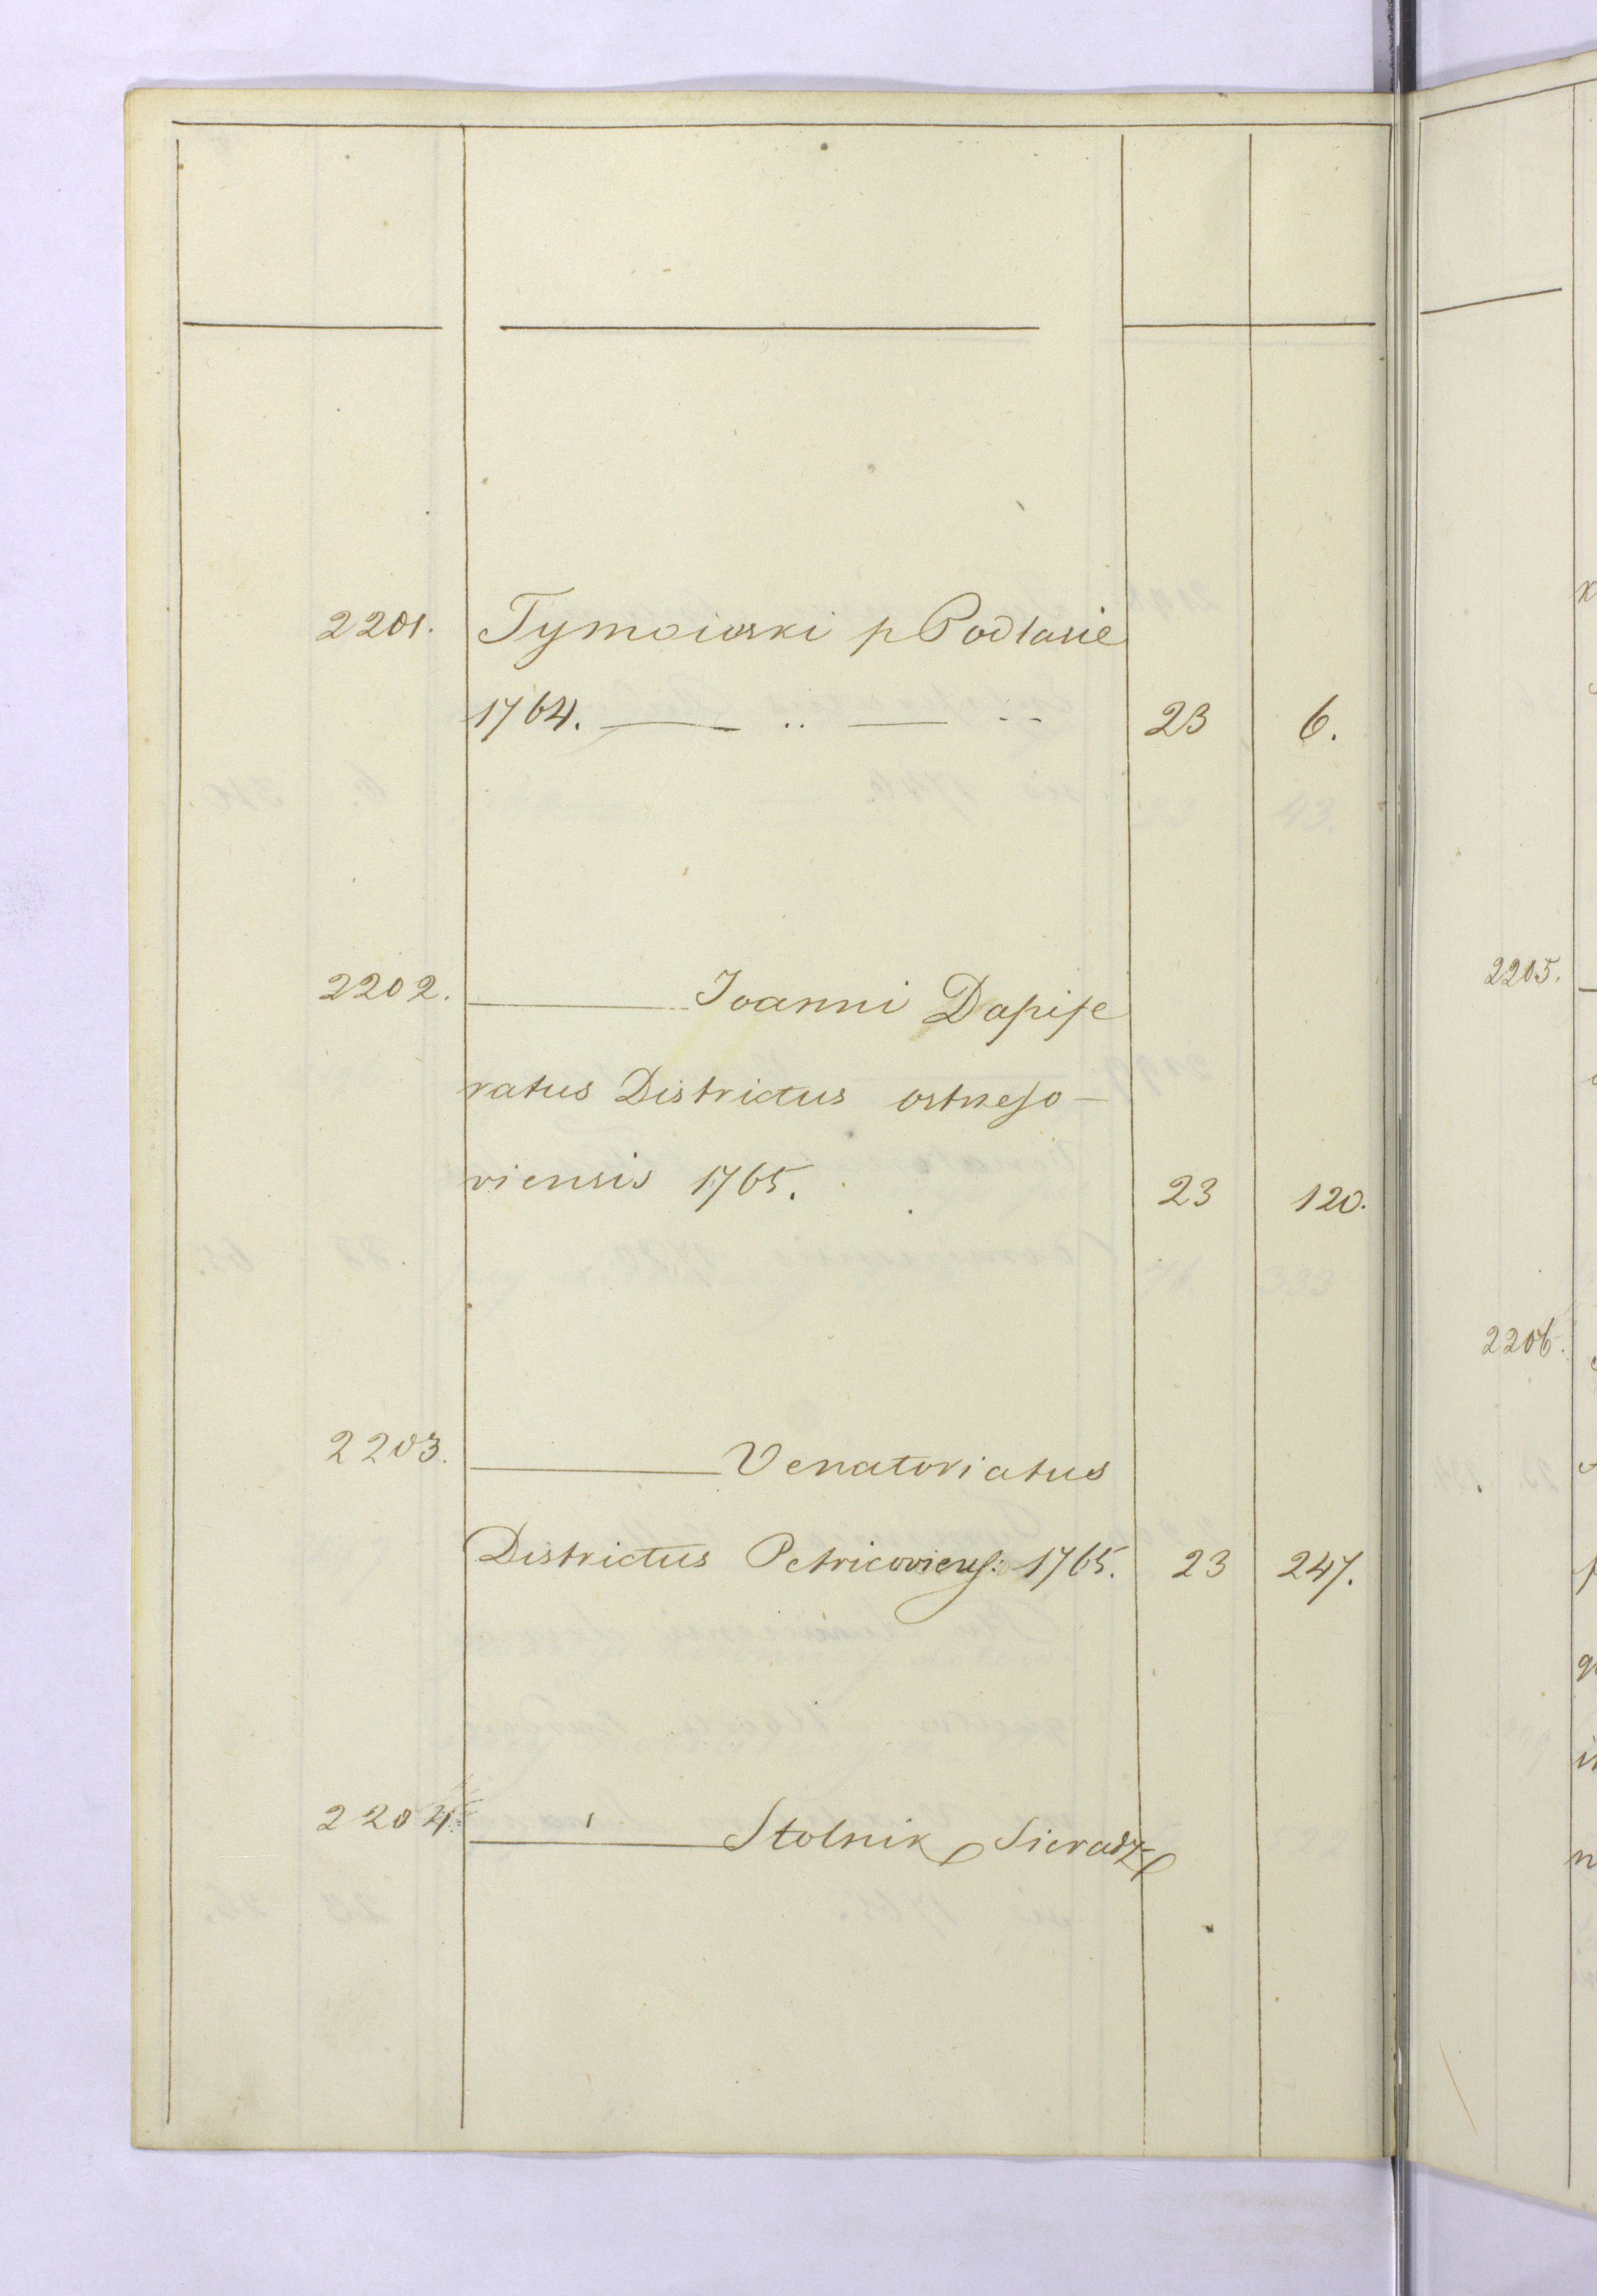 2201. Tymoioski p Podlasie
1764. — .. — -- 23 6.
2202. — Joanni Dapife
ratus Districtus
viensis 1765. 23 120.
2203. — Venatoriatus
Districtus Petricoviens: 1765. 23 247.
2204. — Stolnik Sieradz
2205.
2206.